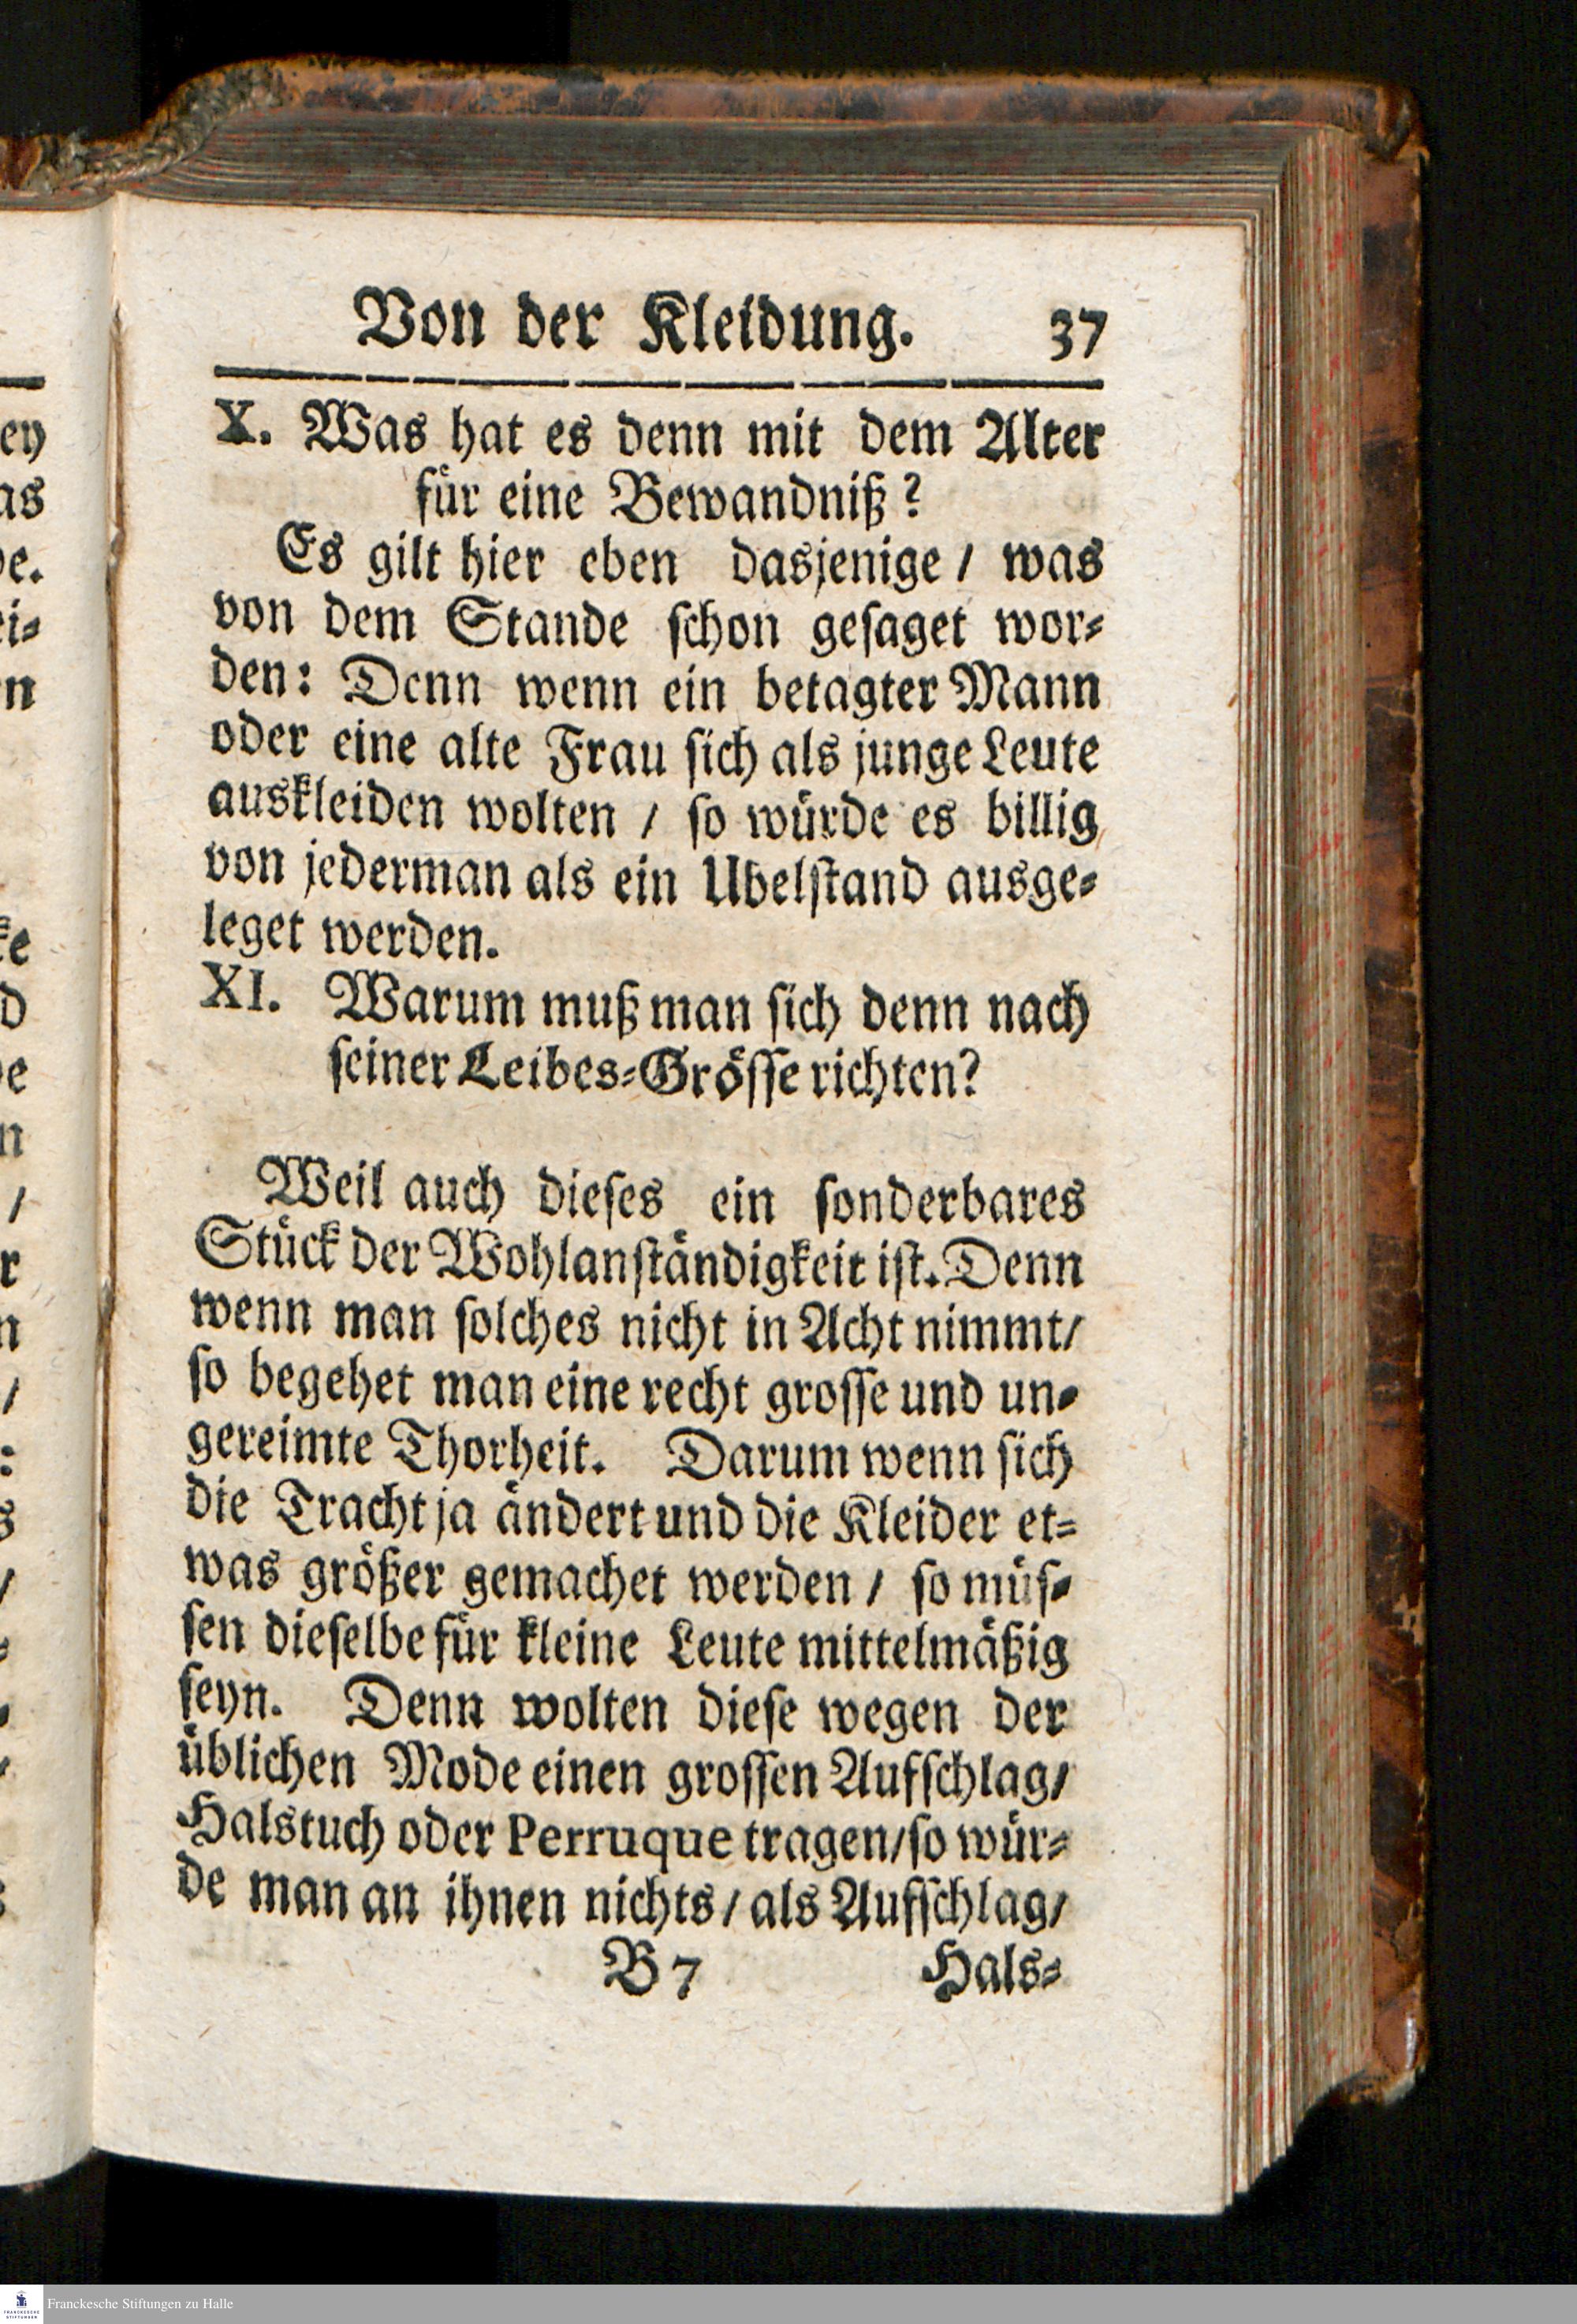 Von der Kleidung. 37
X. Was hat es denn mit dem Alter
für eine Bewandniß?
Es gilt hier eben dasjenige / was
von dem Stande ſchon geſaget wor⸗
den: Denn wenn ein betagter Mann
oder eine alte Frau ſich als junge Leute
auskleiden wolten / ſo würde es billig
von jederman als ein Ubelſtand ausge⸗
leget werden.
XI. Warum muß man ſich denn nach
ſeiner Leibes⸗Gröſſe richten?
Weil auch dieſes ein ſonderbares
Stück der Wohlanſtändigkeit iſt. Denn
wenn man ſolches nicht in Acht nimmt/
ſo begehet man eine recht groſſe und un⸗
gereimte Thorheit. Darum wenn ſich
die Tracht ja ändert und die Kleider et⸗
was größer gemachet werden / ſo müſ⸗
ſen dieſelbe für kleine Leute mittelmäßig
ſeyn. Denn wolten dieſe wegen der
üblichen Mode einen groſſen Aufſchlag/
Halstuch oder Perruque tragen/ſo wür⸗
de man an ihnen nichts / als Aufſchlag/
B 7 Hals⸗
Franckesche Stiftungen zu Halle